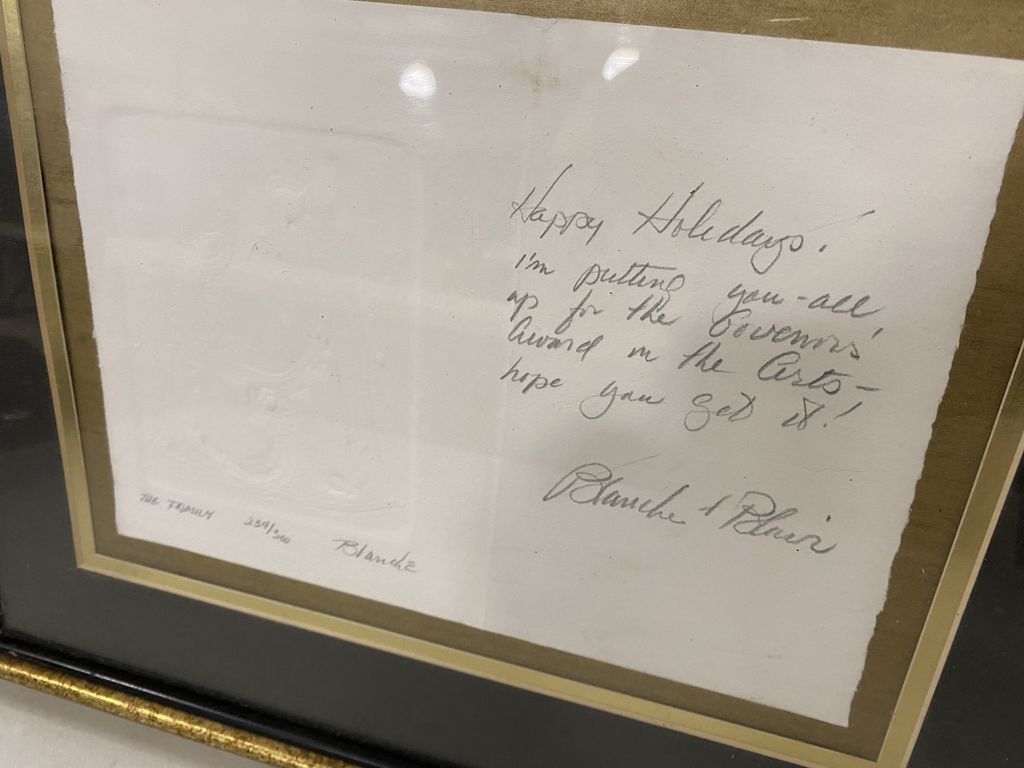 Happy Holidays!
I'm putting you-all
up for the Governors'
Award in the Arts-
hope you get it!
Blanche & Blair
THE FAMILY 239/300 Blanche